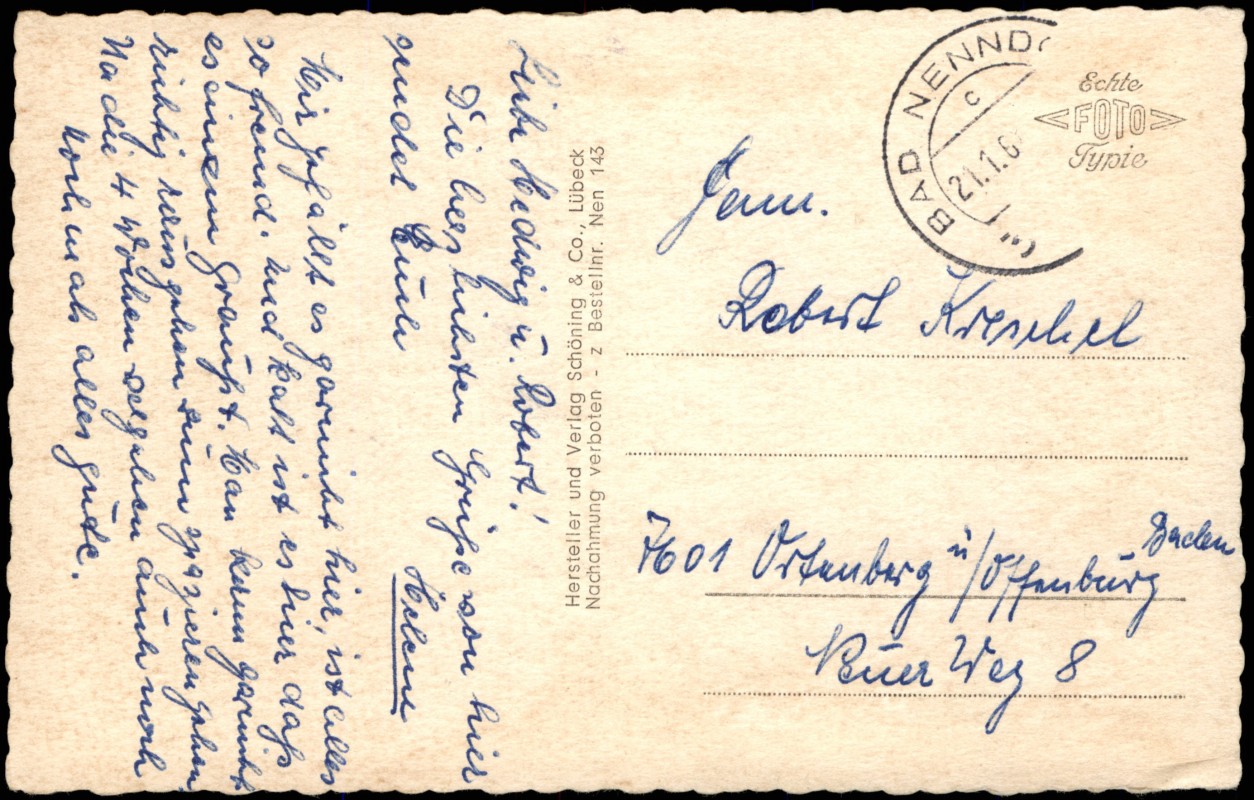 Liebe Hedwig u. Robert!
Die herzlichsten Grüße von hier
sendet Euch
Helene
Mir gefällt es garnicht hier, ist alles
so fremd. und kalt ist es hier daß
es einem graußt. Man kann garnicht
richtig raus gehen zum spazieren gehen.
Na die 4 Wochen vergehen auch noch
nochmals alles gute.
Hersteller und Verlag Schöning & Co., Lübeck
Nachahmung verboten - z Bestellnr. Nen 143
BAD NENNDO
c
21.1.6
Echte
FOTO
Typie
Fam.
Robert Kreschel
7601 Ortenberg ü/Offenburg
Baden
Neuer Weg 8